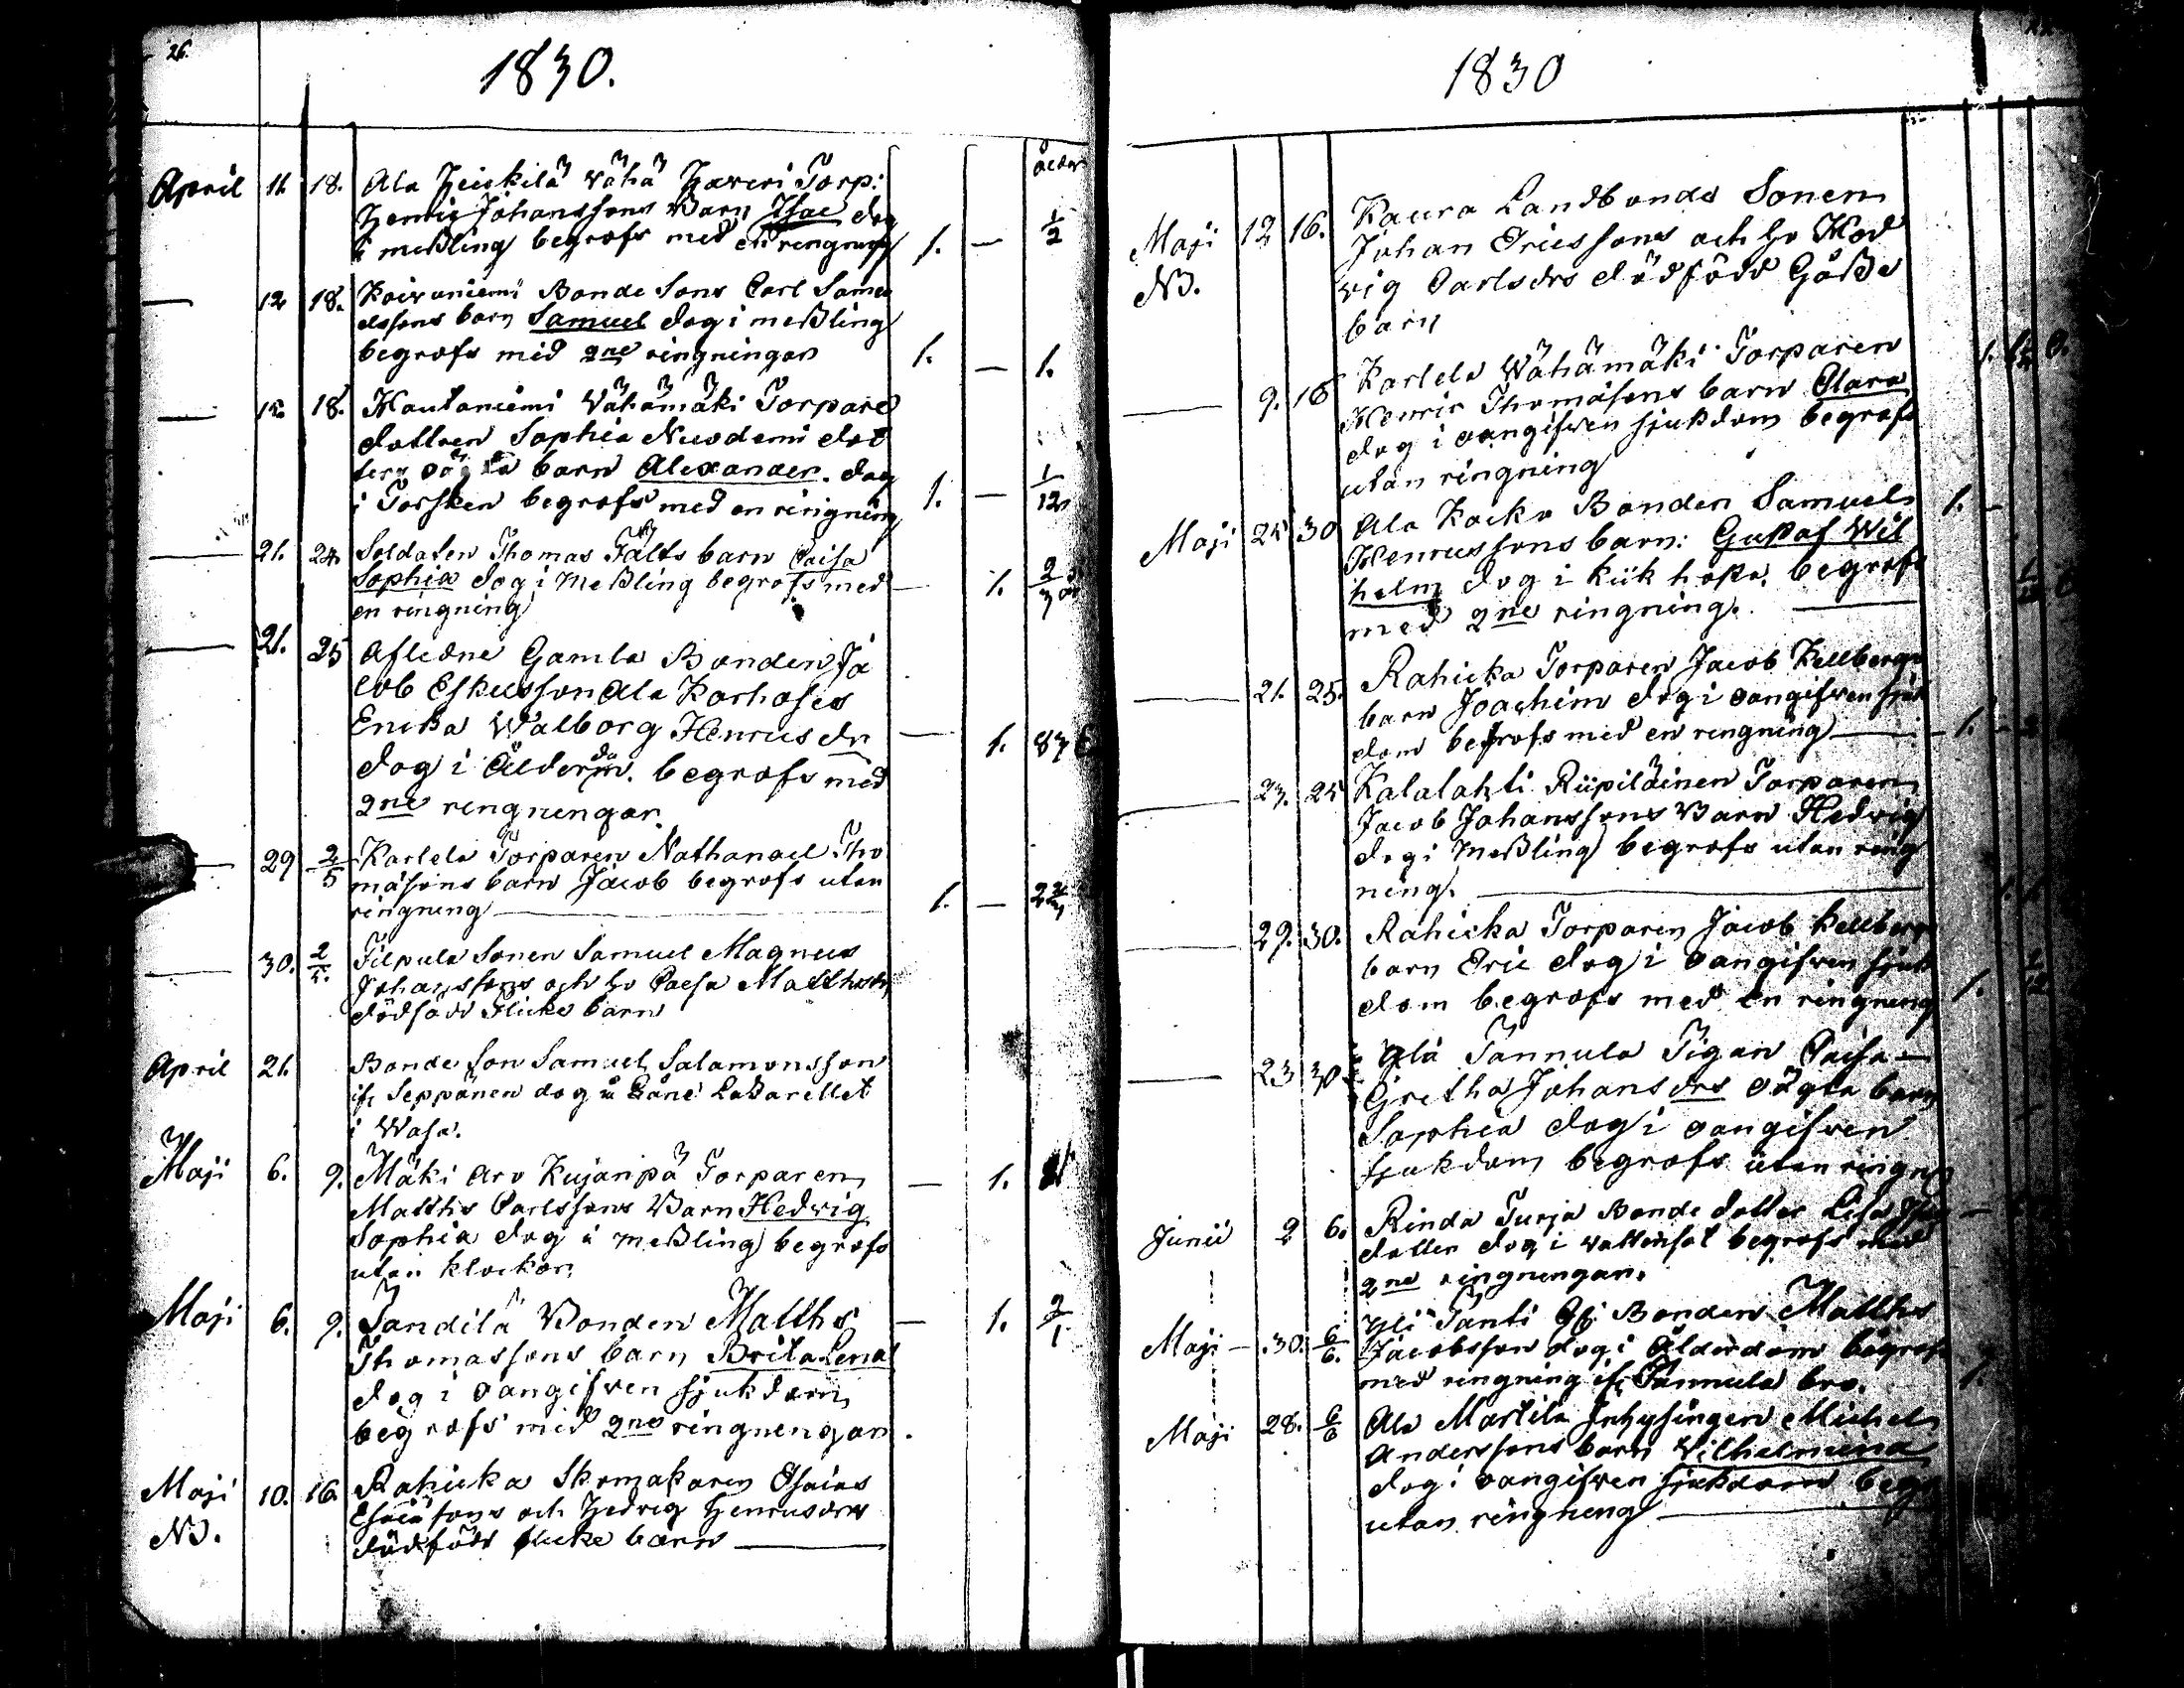 26.
1830.
ålder
April 11. 18. Ala Heickilä Wähä Haveri Torp:
Henric Johanssons Barn Isac dog
i meßling begrofs med en ringning 1. — 1/2
— 12 18. Koivuniemi Bonde Sons Carl Samu
elssons barn Samuel dog i meßling
begrofs med 2ne ringningar 1. — 1.
— 15. 18. Hautaniemi Wähämäki Torpare
dottren Sophia Nicodemi dot
ters oägta barn Alexander. dog
i Torsken begrofs med en ringning 1. — 1/12
— 21. 24. Soldaten Thomas Fälts barn Caisa
Sophia dog i Meßling begrofs med — 1.
en ringning
— 21. 25 Afledne Gamla Bonden Ja
cob Eskilsson Ala Karhosis
Enka Walborg Henricsdr — 1. 83
dog i Ålderdom. begrofs med
2ne ringningar.
— 29 2/5 Karlela Torparen Nathanael Tho
mæsons barn Jacob begrofs utan
ringning — 1. —
— 30. 2/5. Tilpula Sonen Samuel Magnus
Johanssons och hu Caisa Matthsdr
dödfödd Flicke barn
April 21. Bonde Son Samuel Salamonsson
if: Seppänen dog å Läne Lazarettet
i Wasa.
Maji 6. 9. Mäki Aro Kujanpä Torparen — 1.
Matths Carlssons Barn Hedvig
Sophia dog i meßling begrofs
utan klockor.
Maji 6. 9. Sandilä Bonden Matths — 1. 2/1
Thomassons barn Brita Lena
dog i oangifven sjukdom
begrofs med 2ne ringningar.
Maji 10. 16. Rahicka Skomakaren Esaias
NB. Esaiæsons och Hedvig Henricsdrs
dödfödd flicke barn —
1830
Maji 12 16. Kaura Landbonde Sonen
NB. Johan Ericssons och hu Hed
vig Carlsdrs dödfödd Gåsse
barn
— 9. 16 Karlela Wähämäki Torparen 1.
Henric Thomæsons barn Clara
dog i oangifven sjukdom begrofs
utan ringning
Maji 25 30 Ala Kocko Bonden Samuel 1. —
Henricssons barn: Gustaf Wil
helm dog i kikhosta. begrofs
med 2ne ringning. —
— 21. 25. Rahicka Torparen Jacob Kellbergs
barn Joachim dog i oangifven sjuk
dom begrofs med en ringning — 1.
— 23. 25 Kalalahti Riipiläinen Torparen
Jacob Johanssons Barn Hedvig
dog i Meßling begrofs utan ring
ning. —
— 29. 30. Rahicka Torparen Jacob Kellbergs
barn Eric dog i oangifven sjuk
dom begrofs med en ringning 1.
— 23 30 Ylä Tannula Pigan Caisa —
Gretha Johansdrs oägta barn
Sophia dog i oangifven
sjukdom begrofs utan ringning
Junii 2 6. Rinda Turja Bonde dotter Lisa —
dotter dog i vattusot begrofs med
2ne ringningar.
Maji — 30. 6/6. Yli Panti Bonden Matths
Jacobsson dog i Ålderdom begrofs
med ringning if: Tannula bro. 1.
Maji 28. 6/6 Ala Martila Inhysingen Michel
Anderssons barn Vilhelmina
dog i oangifven sjukdom begr
utan ringning —